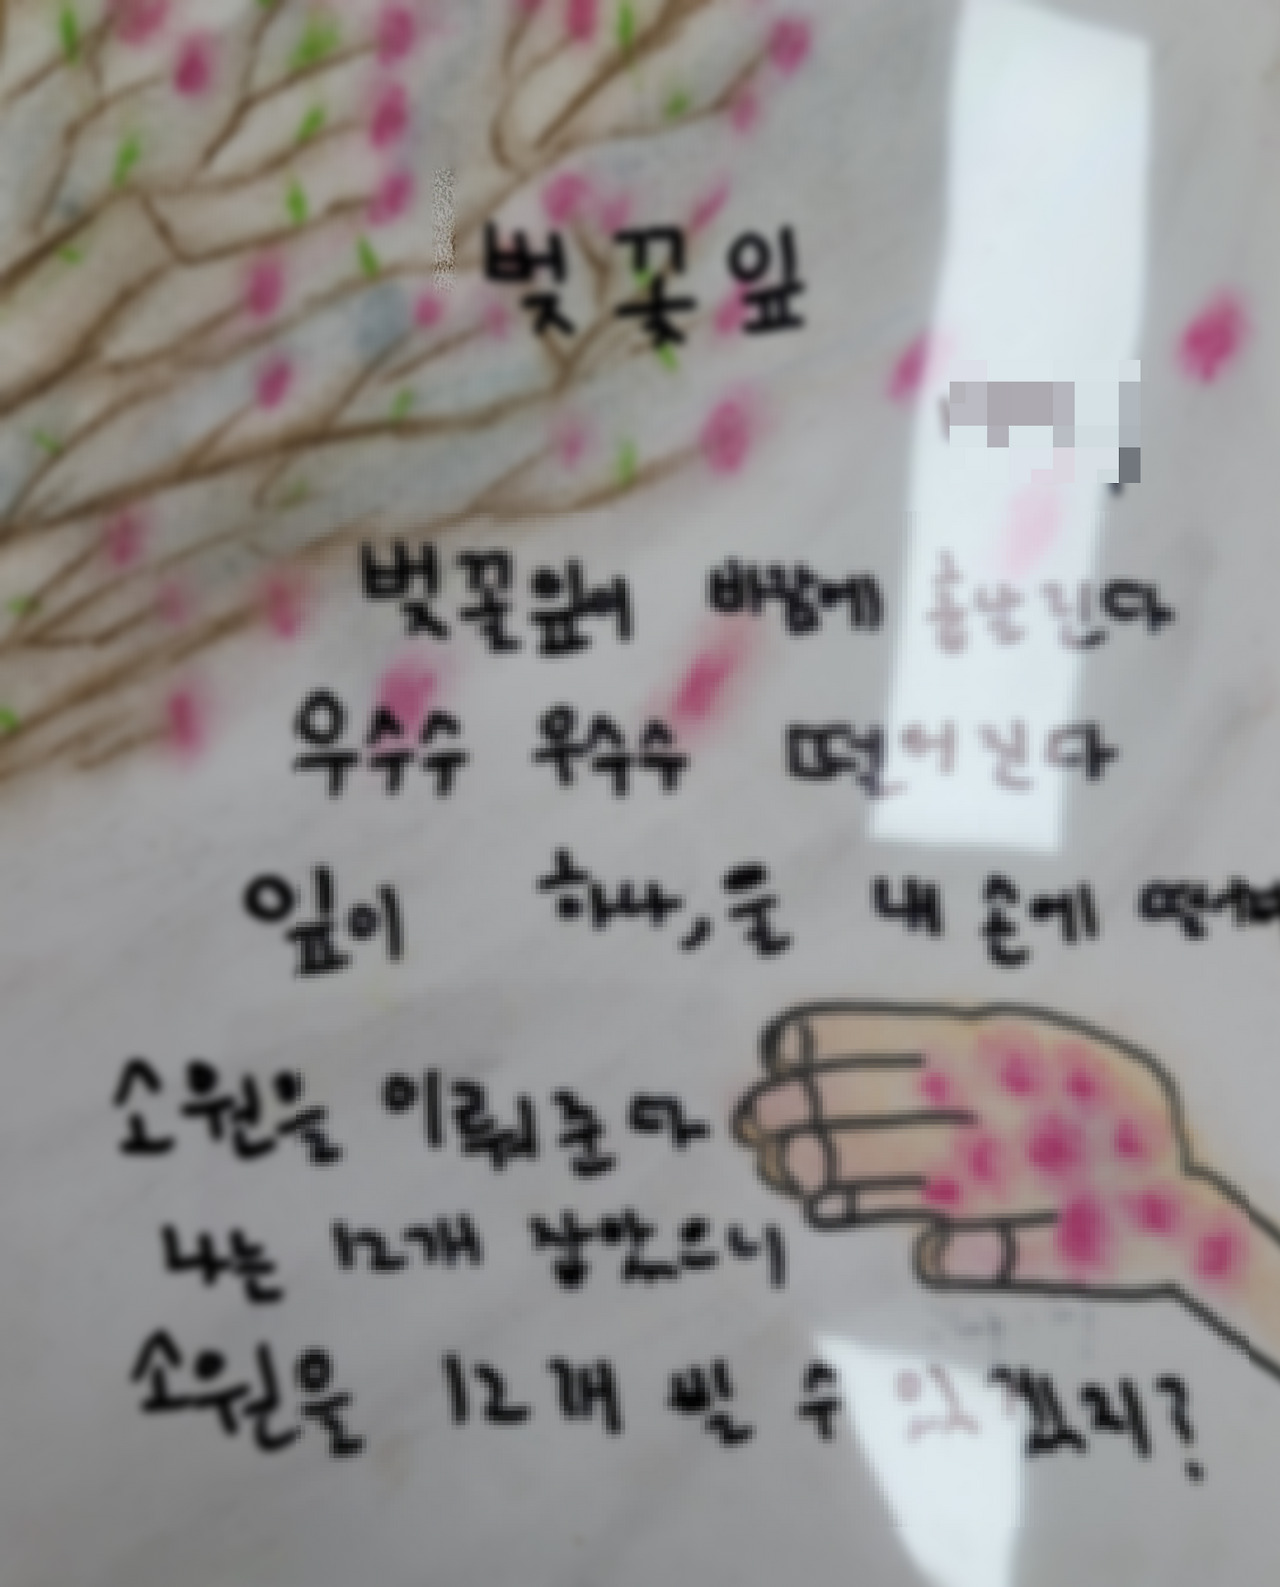 벚꽃잎
벚꽃잎이 바람에 흩날린다
우수수 우수수 떨어진다
잎이 하나, 둘 내 손에
소원을 이뤄준다
나는 12개 잡았으니
소원을 12개 빌 수 있겠지?